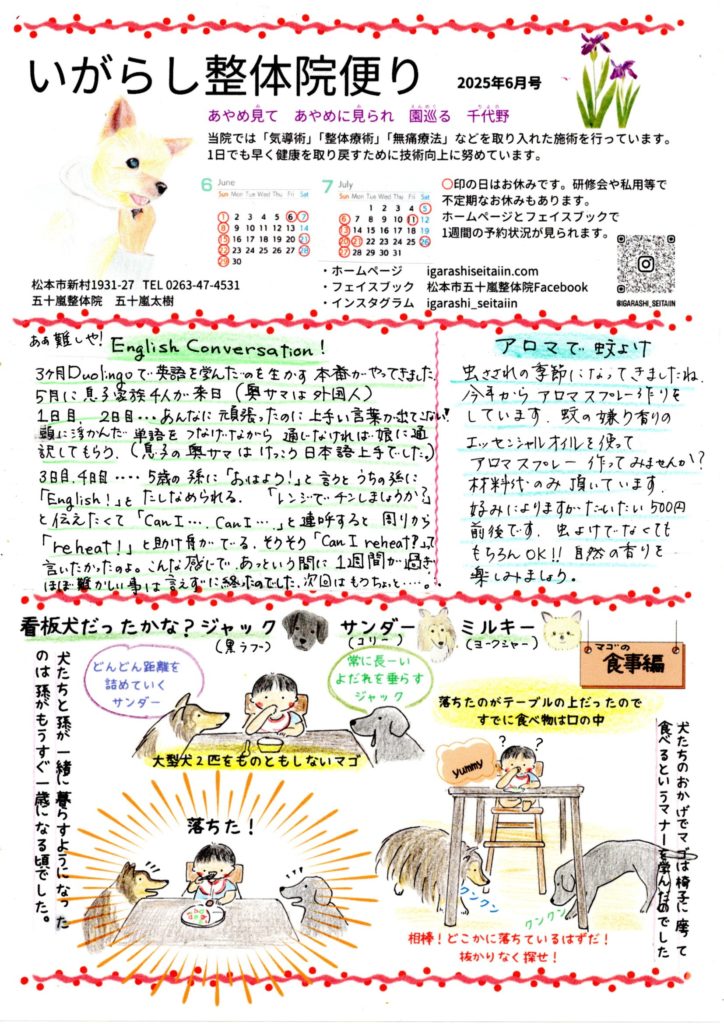 いがらし整体院便り 2025年6月号
あやめ見て あやめに見られ 園巡る 千代野
当院では「気導術」「整体療術」「無痛療法」などを取り入れた施術を行っています。
1日でも早く健康を取り戻すために技術向上に努めています。
6 June
Sun Mon Tue Wed Thu Fri Sat
1 2 3 4 5 6 7
8 9 10 11 12 13 14
15 16 17 18 19 20 21
22 23 24 25 26 27 28
29 30
7 July
Sun Mon Tue Wed Thu Fri Sat
1 2 3 4 5
6 7 8 9 10 11 12
13 14 15 16 17 18 19
20 21 22 23 24 25 26
27 28 29 30 31
○印の日はお休みです。研修会や私用等で
不定期なお休みもあります。
ホームページとフェイスブックで
1週間の予約状況が見られます。
松本市新村1931-27 TEL 0263-47-4531
五十嵐整体院 五十嵐太樹
・ホームページ igarashiseitaiin.com
・フェイスブック 松本市五十嵐整体院Facebook
・インスタグラム igarashi_seitaiin
@IGARASHI_SEITAIIN
ああ難しや! English Conversation!
3ヶ月Duolingoで英語を学んだのを生かす本番がやってきました
5月に息子家族4人が来日(奥サマは外国人)
1日目、2日目…あんなに頑張ったのに上手い言葉が出てこない!
頭に浮かんだ単語をつなげながら通じなければ娘に通
訳してもらう。(息子の奥サマはけっこう日本語上手でした。)
3日目、4日目‥‥5歳の孫に「おはよう!」と言うとうちの孫に
「English!」とたしなめられる。「レンジでチンしましょうか?」
と伝えたくて「Can I…、Can I…、」と連呼すると周りから
「reheat!」と助け舟がでる。そうそう「Can I reheat?」って
言いたかったのよ。こんな感じで、あっという間に1週間が過ぎ
ほぼ難かしい事は言えずに終ったのでした。次回はもうちょと……。
アロマで蚊よけ
虫さされの季節になってきましたね
今年からアロマスプレー作りを
しています。蚊の嫌う香りの
エッセンシャルオイルを使って
アロマスプレー作ってみませんか?
材料代のみ頂いています。
好みによりますがだいたい500円
前後です。虫よけでなくても
もちろんOK!!自然の香りを
楽しみましょう。
看板犬だったかな?ジャック サンダー ミルキー
(黒ラブ) (コリー) (ヨークシャー)
マゴの
食事編
犬たちと孫が一緒に暮らすようになった
のは孫がもうすぐ一歳になる頃でした。
どんどん距離を
詰めていく
サンダー
常に長ーい
よだれを垂らす
ジャック
大型犬2匹をものともしないマゴ
落ちた!
落ちたのがテーブルの上だったので
すでに食べ物は口の中
? ?
yummy
クンクン
クンクン
相棒!どこかに落ちているはずだ!
抜かりなく探せ!
犬たちのおかげでマゴは椅子に座って
食べるというマナーを学んだのでした